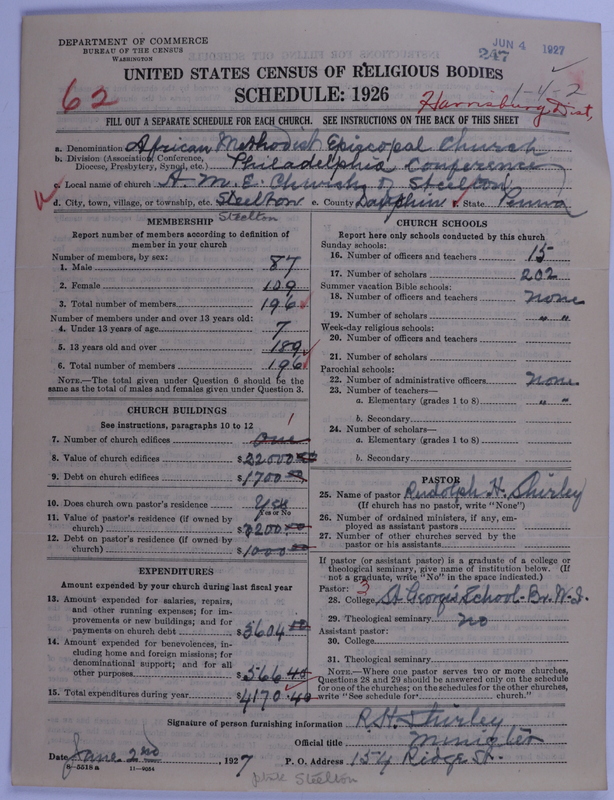 DEPARTMENT OF COMMERCE
BUREAU OF THE CENSUS
WASHINGTON
JUN 4 1927
247
UNITED STATES CENSUS OF RELIGIOUS BODIES
1-4-2
62
SCHEDULE: 1926
Harrisburg Dist,
FILL OUT A SEPARATE SCHEDULE FOR EACH CHURCH. SEE INSTRUCTIONS ON THE BACK OF THIS SHEET
a. Denomination African Methodist Episcopal Church
b. Division (Association, Conference, Diocese, Presbytery, Synod, etc.) Philadelphia Conference
c. Local name of church A. M. E. Church of Steelton
d. City, town, village, or township, etc. Steelton e. County Dauphin State Penna
Steelton
MEMBERSHIP
Report number of members according to definition of
member in your church
Number of members, by sex:
1. Male 87
2. Female 109
3. Total number of members 196
Number of members under and over 13 years old:
4. Under 13 years of age 7
5. 13 years old and over 189
6. Total number of members 196
NOTE.—The total given under Question 6 should be the
same as the total of males and females given under Question 3.
CHURCH BUILDINGS
See instructions, paragraphs 10 to 12
1
7. Number of church edifices One
8. Value of church edifices $22000.00
9. Debt on church edifices $1700
10. Does church own pastor's residence Yes
Yes or No
11. Value of pastor's residence (if owned by
church) $ 200.00
12. Debt on pastor's residence (if owned by
church) $1000
EXPENDITURES
Amount expended by your church during last fiscal year
13. Amount expended for salaries, repairs,
and other running expenses; for im-
provements or new buildings; and for
payments on church debt $3604.00
14. Amount expended for benevolences, in-
cluding home and foreign missions; for
denominational support; and for all
other purposes $566.40
15. Total expenditures during year $4170.40
CHURCH SCHOOLS
Report here only schools conducted by this church
Sunday schools:
16. Number of officers and teachers 15
17. Number of scholars 202
Summer vacation Bible schools:
18. Number of officers and teachers none
19. Number of scholars " "
Week-day religious schools:
20. Number of officers and teachers
21. Number of scholars
Parochial schools:
22. Number of administrative officers none
23. Number of teachers—
a. Elementary (grades 1 to 8) " "
b. Secondary
24. Number of scholars—
a. Elementary (grades 1 to 8)
b. Secondary
PASTOR
25. Name of pastor Rudolph H. Shirley
(If church has no pastor, write "None")
26. Number of ordained ministers, if any, em-
ployed as assistant pastors
27. Number of other churches served by the
pastor or his assistants
If pastor (or assistant pastor) is a graduate of a college or
theological seminary, give name of institution below. (If
not a graduate, write "No" in the space indicated.)
Pastor: 3
28. College St George's School-Br. W. I.
29. Theological seminary no
Assistant pastor:
30. College
31. Theological seminary
NOTE.—Where one pastor serves two or more churches,
Questions 28 and 29 should be answered only on the schedule
for one of the churches; on the schedules for the other churches,
write "See schedule for church."
Signature of person furnishing information R. H. Shirley
Official title Minister
Date June 2nd, 1927 P. O. Address 154 Ridge St.
8-5518 a 11-9034
Steelton